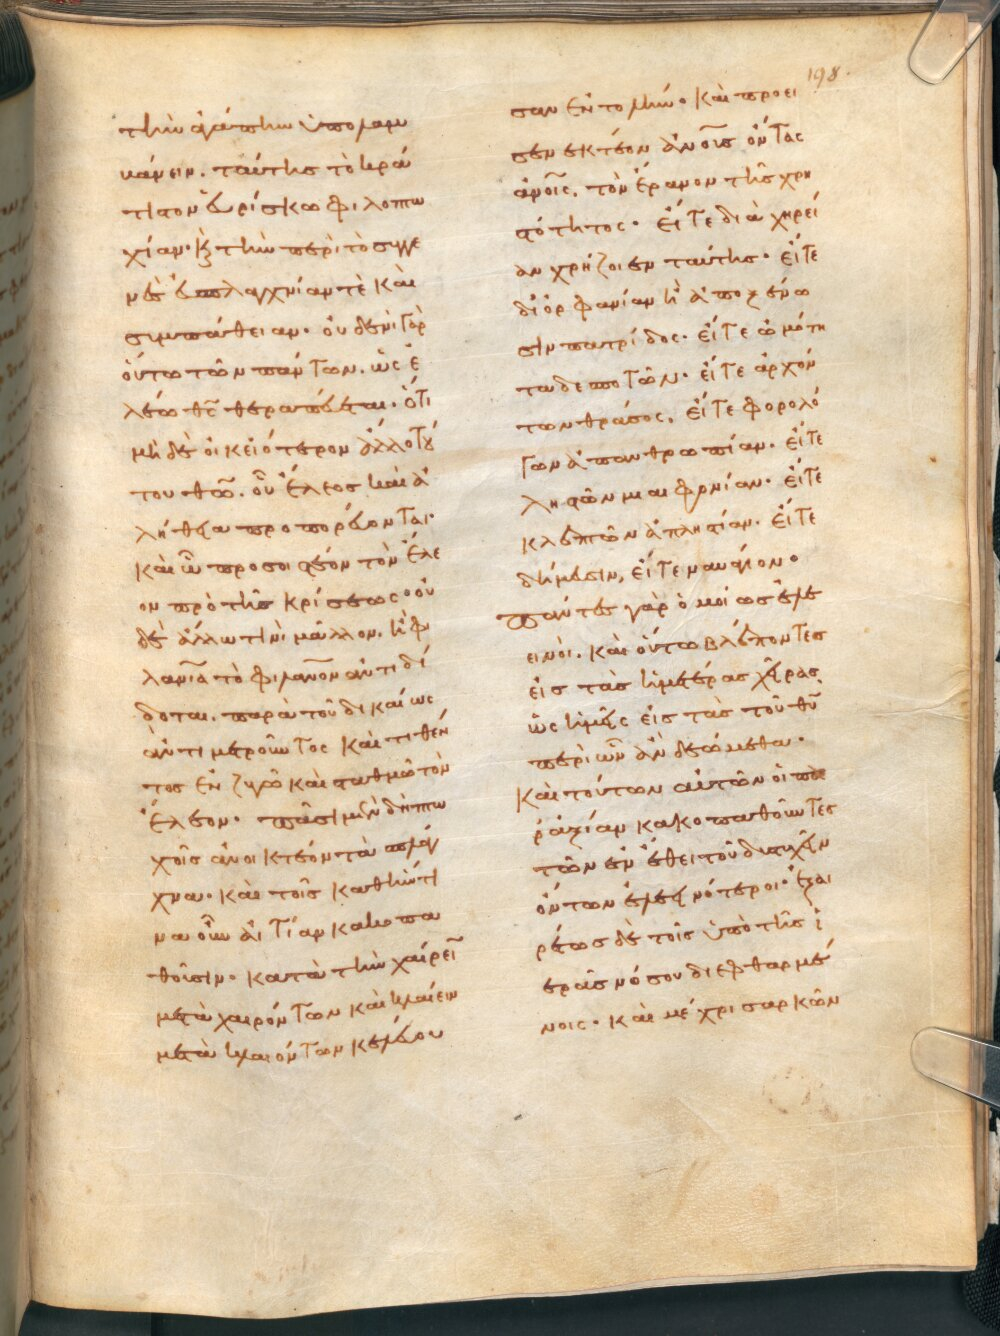 198.
τὴν ἀγάπην ὑπολαμ
βάνειν. ταύτης τὸ κρά
τιστον εὑρίσκω φιλοπτω
χίαν· κ̀ τὴν περὶ τὸ συγγε
νὲς εὐσπλαγχνίαν τὲ καὶ
συμπάθειαν. οὐδενὶ γὰρ
οὕτω τῶν πάντων. ὡς ἐ
λέω θς̄ θεραπεύεται. ὅτι
μὴ δὲ οἰκειότερον ἄλλο τού
του θω̄. οὗ ἔλεος καὶ ἀ
λήθεια προπορεύονται·
καὶ ὧ προσοιστέον τὸν ἔλε
ον πρὸ τῆς κρίσεως· οὐ
δὲ ἄλλω τινὶ μᾶλλον. ἢ φι
λανίᾱ τὸ φιλανον̄ ἀντιδί
δοται. παρὰ τοῦ δικαίως
ἀντιμετροῦντος καὶ τιθέν
τος ἐν ζυγῶ καὶ σταθμῶ τὸν
ἔλεον· πᾶσι μὲν δὴ πτω
χοῖς ἀνοικτέον τὰ σπλάγ
χνα· καὶ τοῖς καθ' ἥντι
να οὖν αἰτίαν κακοπα
θοῦσιν· κατὰ τὴν χαίρειν̄
μετὰ χαιρόντων καὶ κλαίειν
μετὰ κλαιόντων κελεύου
σαν ἐντολήν· καὶ προει
σενεκτέον ἀνοῑς ὄντας
ἀνοῑς. τὸν ἔρανον τῆς χρη
στότητος· εἴτε διὰ χηρεί
αν χρήζοιεν ταύτης· εἴτε
δι' ὀρφανίαν ἢ ἀποξένω
σιν πατρίδος· εἴτε ὠμότη
τα δεσποτῶν· εἴτε ἀρχόν
των θράσος. εἴτε φορολό
γων ἀπανθρωπίαν. εἴτε
ληστῶν μιαιφονίαν· εἴτε
κλεπτῶν ἀπληστίαν· εἴτε
δήμευσιν, εἴτε ναυάγιον·
πάντες γὰρ ὁμοίως ἐλε
εινοί. καὶ οὕτω βλέποντες
εἰς τὰς ἡμετέρας χεῖρας.
ὡς ἡμεῖς εἰς τὰς τοῦ θῡ
περὶ ὧν ἂν δεώμεθα·
καὶ τούτων αὐτῶν οἱ πα
ρ' ἀξίαν κακοπαθοῦντες
τῶν ἐν ἔθει τοῦ δυστυχεῖν
ὄντων ἐλεεινότεροι· ἐξαι
ρέτως δὲ τοῖς ὑπὸ τῆς ἱ
ερᾶς νόσου διεφθαρμέ
νοις· καὶ μέχρι σαρκῶν